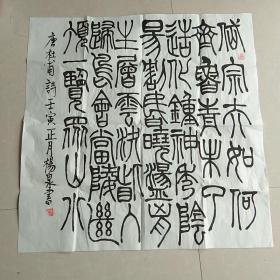 岱宗夫如何
齊魯青未了
造化鍾神秀陰
昜割昏曉盪胸
生層雲決眥入
歸鳥會當陵絕
頂一覽眾山小
唐杜甫詩壬寅正月楊書